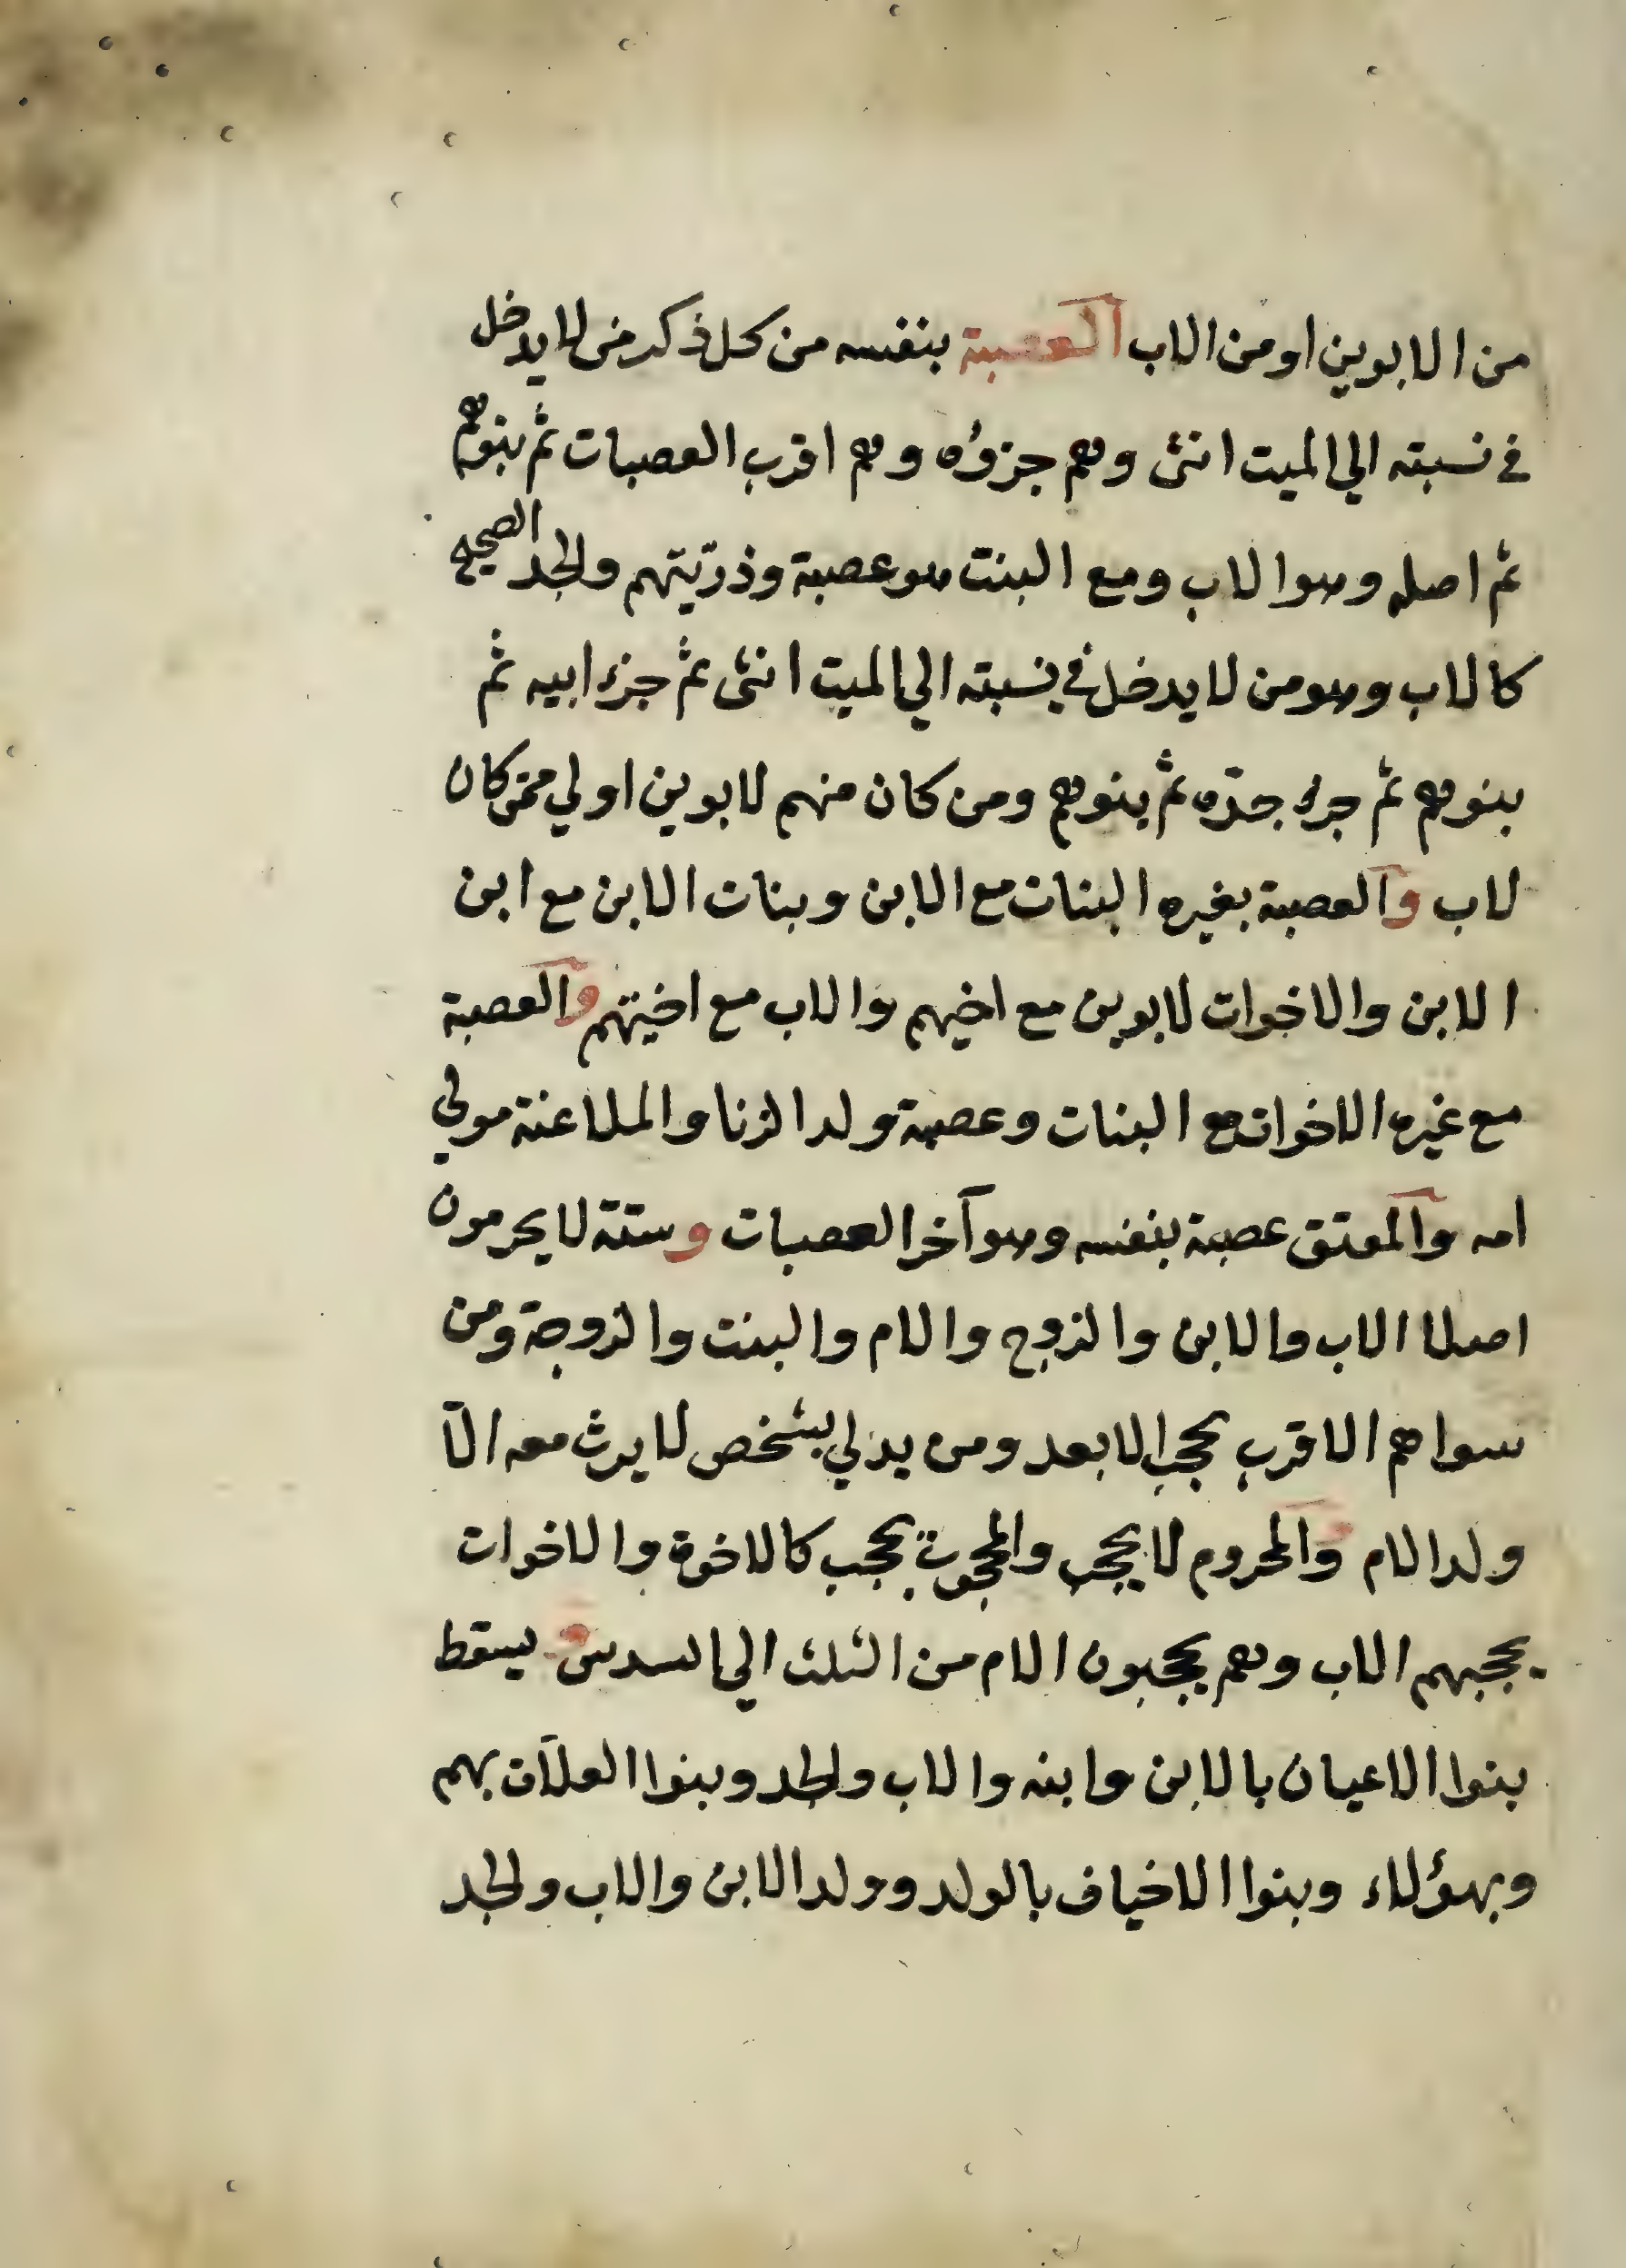 من الابوين او من الاب العصبة بنفسه من كل ذكر من لا يدخل
في نسبته الي الميت انثى وهم جزؤه وهم اقرب العصبات ثم بنوهم
ثم اصله وهو الاب ومع البنت هو عصبة وذريتهم والجد الصحيح
كالاب وهو من لا يدخل في نسبته الي الميت انثى ثم جزء ابيه ثم
بنوهم ثم جزء جدّه ثم بنوهم ومن كان منهم لابوين اولي ممن كان
لاب والعصبة بغيره البنات مع الابن وبنات الابن مع ابن
الابن والاخوات لابوين مع اخيهم والاب مع اختيهم والعصبة
مع غيره الاخوات مع البنات وعصبة ولد الزنا والملاعنة مولي
امه والمعتق عصبة بنفسه وهو آخر العصبات وستة لا يحرمون
اصلا الاب والابن والزوج والام والبنت والزوجة ومن
سواهم الاقرب يحجب الابعد ومن يدلي بشخص لا يرث معه الّا
ولد الام والمحروم لا يحجب والمحجوب يحجب كالاخوة والاخوات
يحجبهم الاب وهم يحجبون الام من الثلث الي السدس ويسقط
بنوا الاعيان بالابن وابنه والاب والجد وبنوا العلّات بهم
وبهؤلاء وبنوا الاخياف بالولد وولد الابن والاب والجد